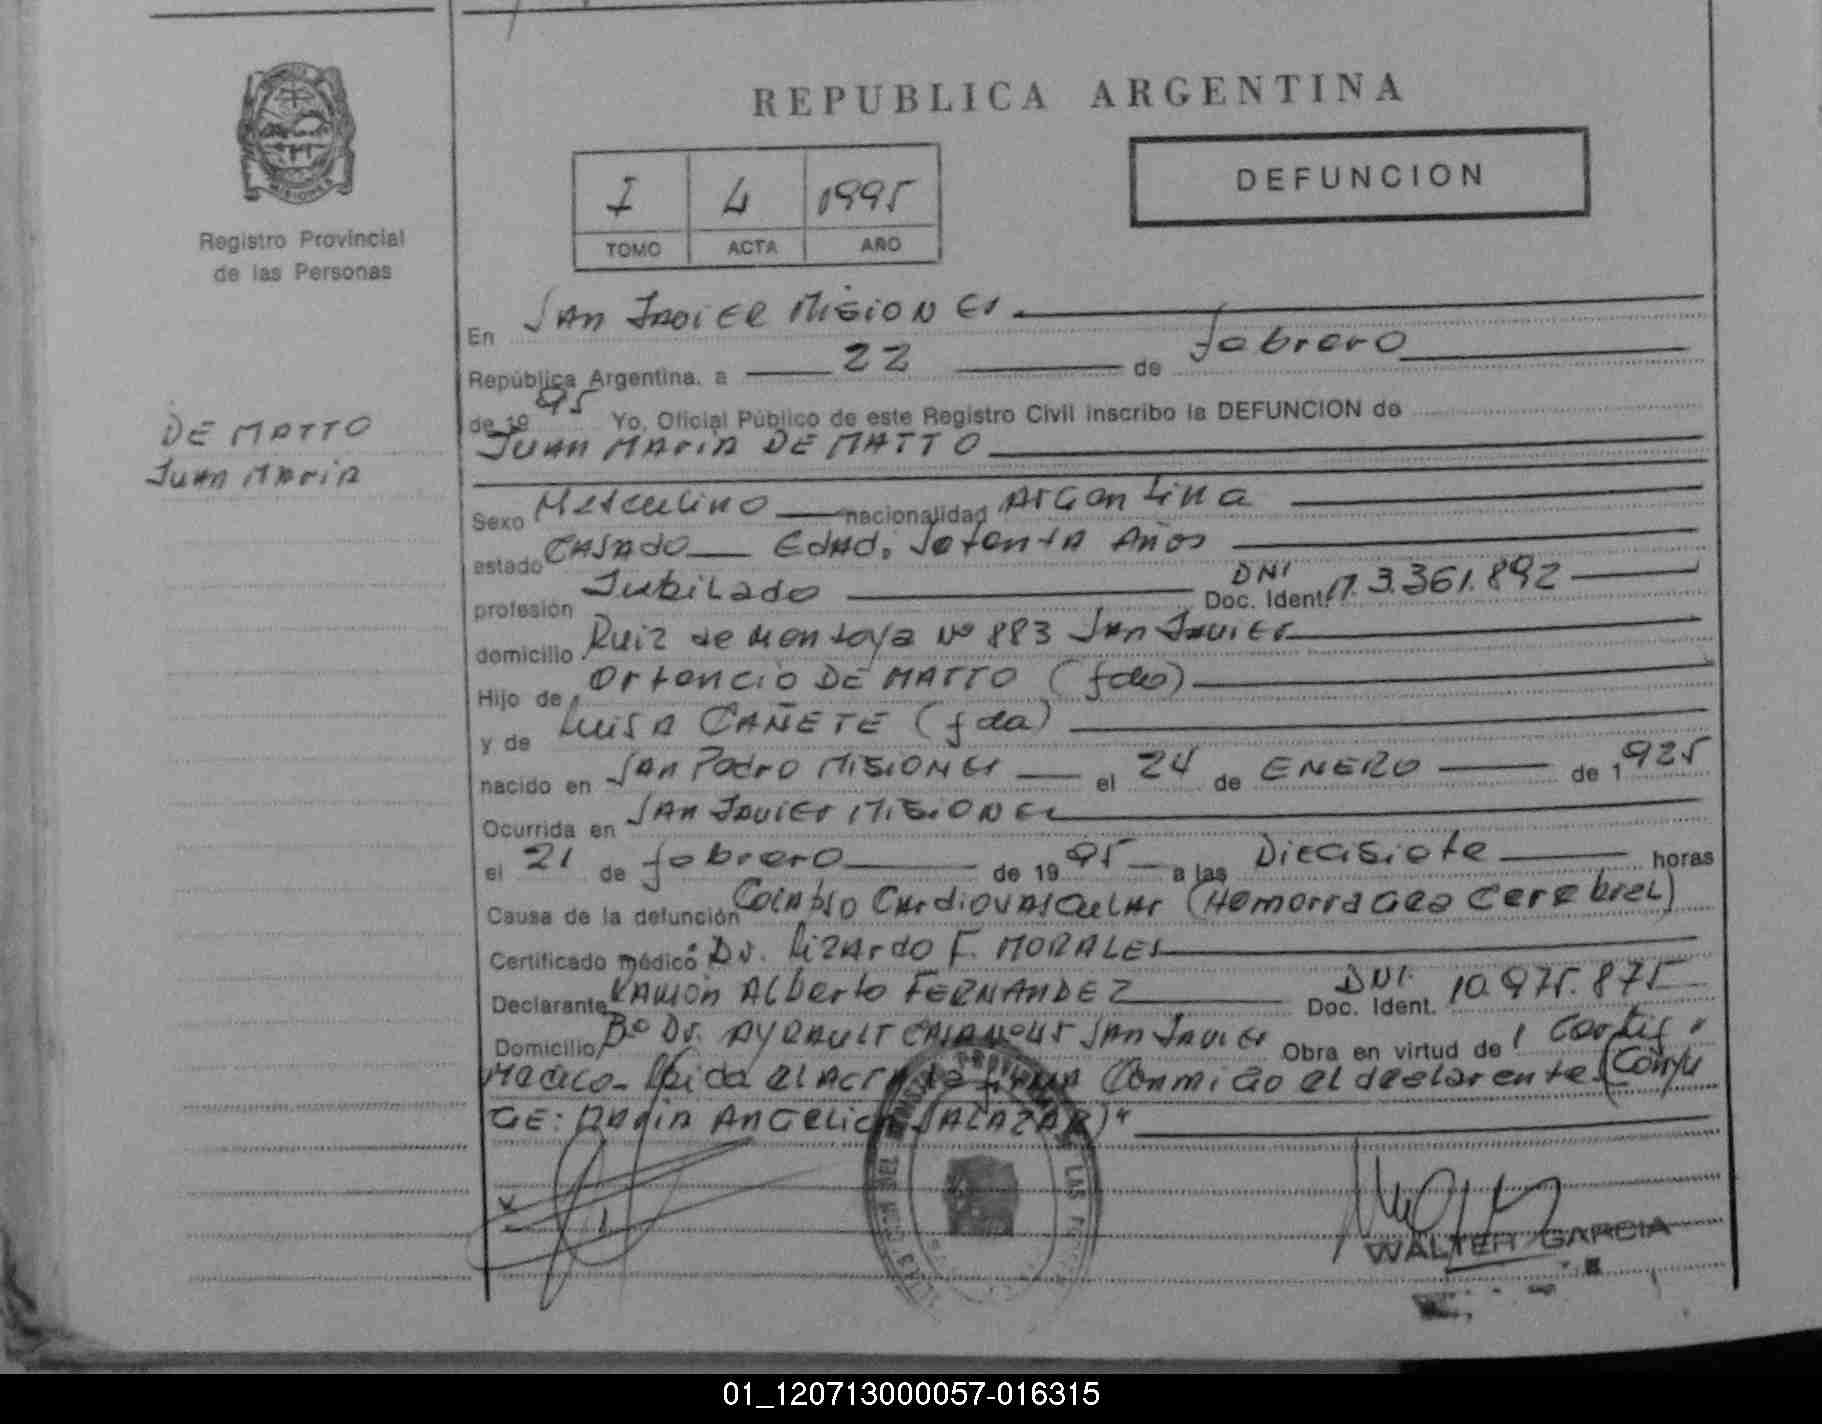 REPUBLICA ARGENTINA
DEFUNCION
I 4 1995
TOMO ACTA AÑO
MISIONES
Registro Provincial
de las Personas
DE MATTO
Juan Maria
En San Javier Misiones
República Argentina, a 22 de febrero
de 1995 Yo, Oficial Público de este Registro Civil inscribo la DEFUNCION de
Juan Maria DE MATTO
Sexo Masculino nacionalidad Argentina
estado Casado Edad. Setenta Años
profesión Jubilado Doc. Ident. DNI n. 3.361.892
domicilio Ruiz de Montoya Nº 883 San Javier
Hijo de Ortencio DE MATTO (fdo)
y de Luisa CAÑETE (fda)
nacido en San Pedro Misiones el 24 de ENERO de 1925
Ocurrida en San Javier Misiones
el 21 de febrero de 1995 a las Diecisiete horas
Causa de la defunción Colapso Cardiovascular (Hemorragea Cerebrel)
Certificado médico Dr. Lizardo F. MORALES
Declarante Ramón Alberto FERNANDEZ Doc. Ident. DNI. 10.975.875
Domicilio Bº Dr. San Javier Obra en virtud de Certif.
Medico. Leida el Acta la firma Conmigo el declarente. (Conyu
GE: Maria Angelica SALAZAR)"
WALTER GARCIA
01_120713000057-016315